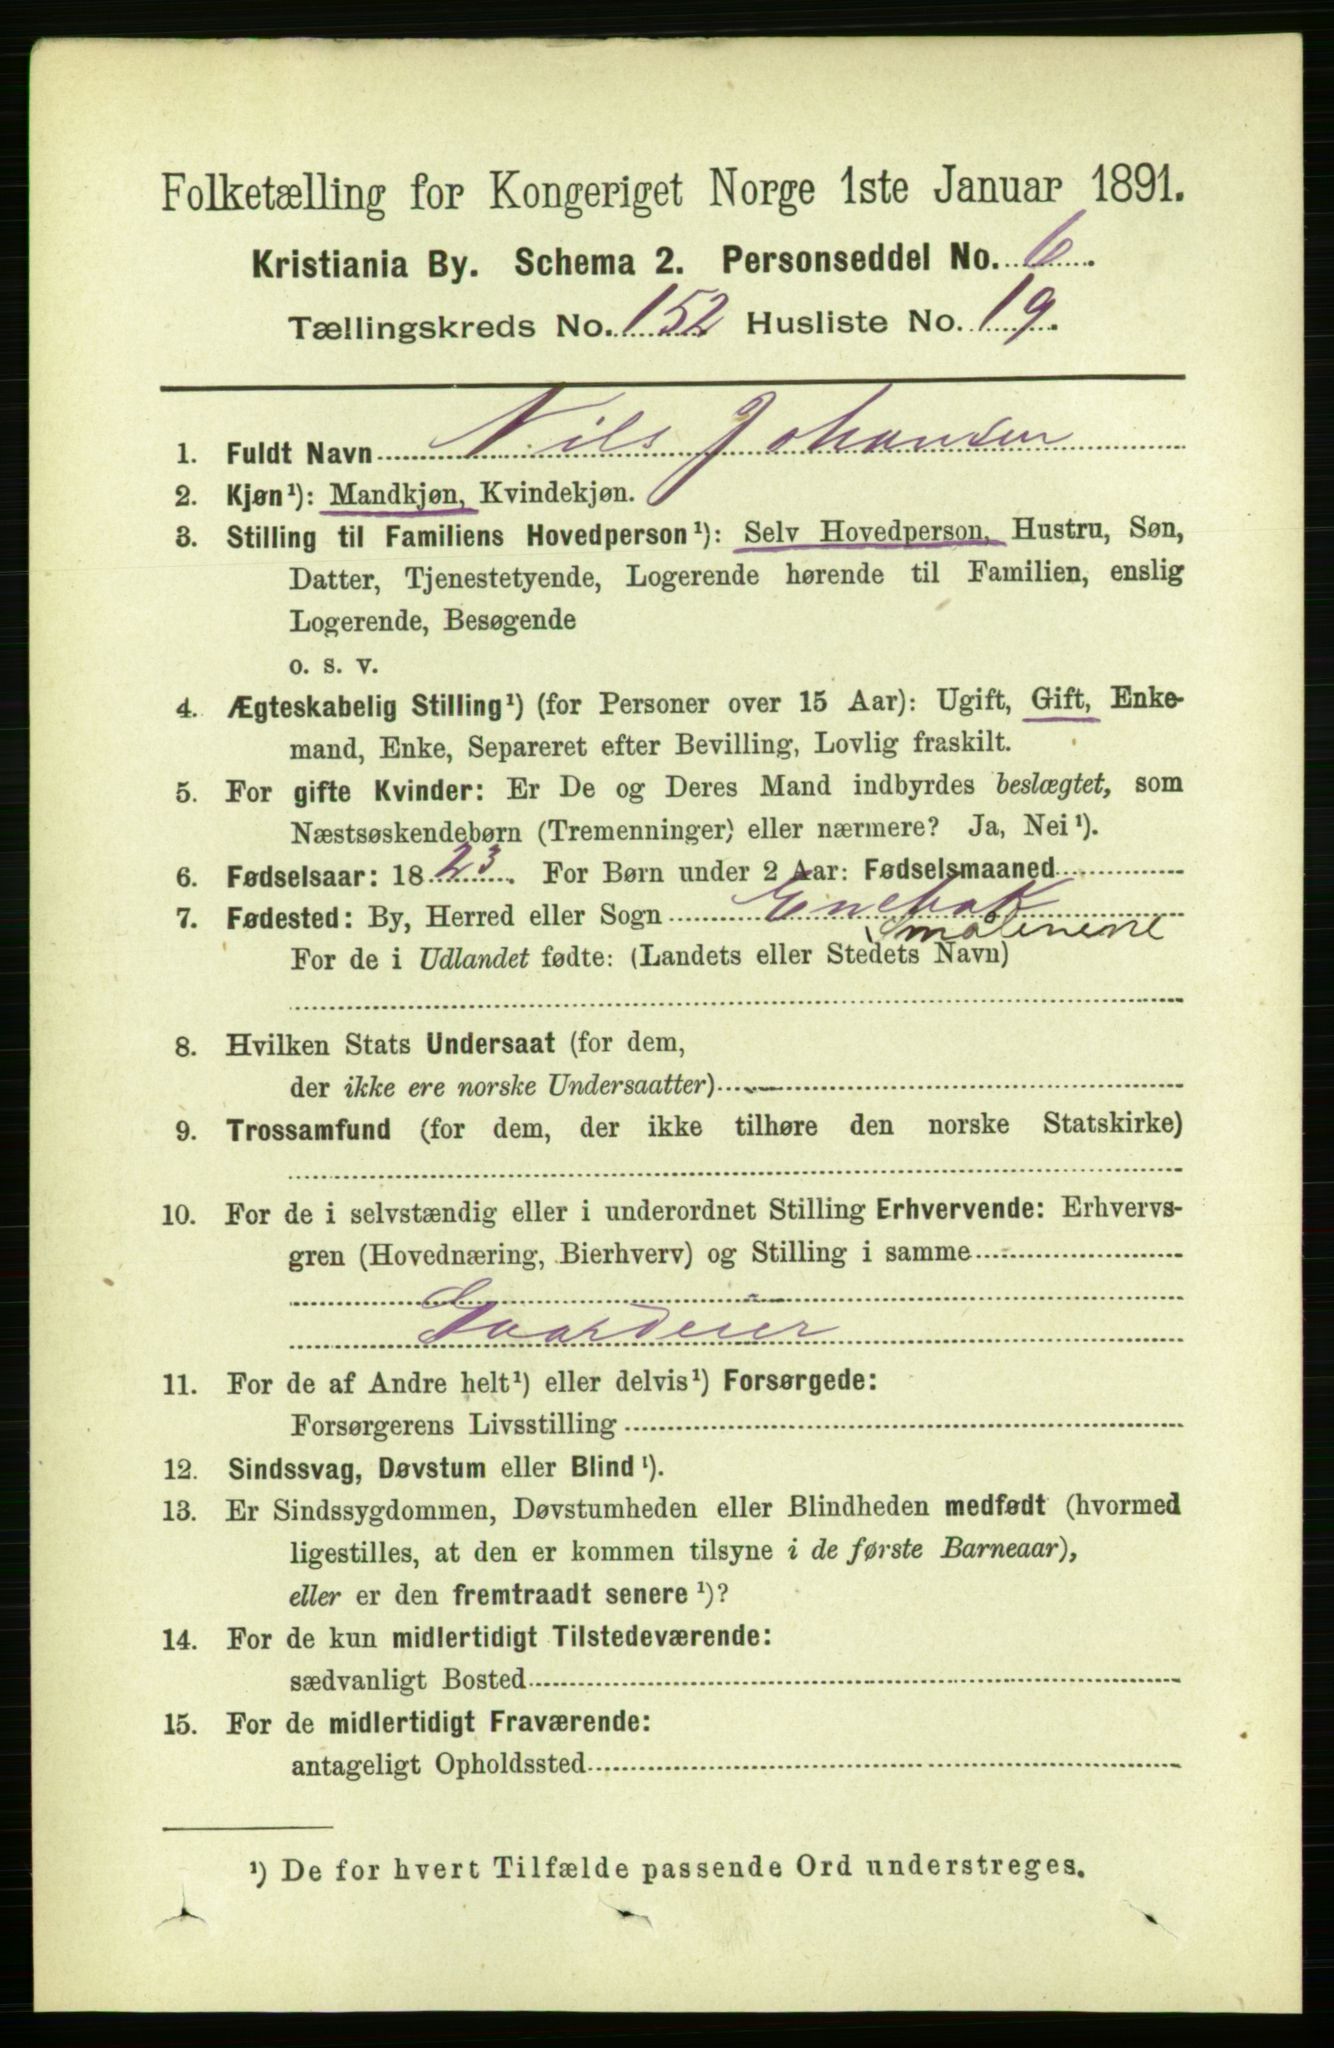 Folketælling for Kongeriget Norge 1ste Januar 1891.
Kristiania By. Schema 2. Personseddel No. 6.
Tællingskreds No. 152 Husliste No. 19.
1. Fuldt Navn Nils Johansen
2. Kjøn¹): Mandkjøn, Kvindekjøn.
3. Stilling til Familiens Hovedperson¹): Selv Hovedperson, Hustru, Søn,
Datter, Tjenestetyende, Logerende hørende til Familien, enslig
Logerende, Besøgende
o. s. v.
4. Ægteskabelig Stilling¹) (for Personer over 15 Aar): Ugift, Gift, Enke-
mand, Enke, Separeret efter Bevilling, Lovlig fraskilt.
5. For gifte Kvinder: Er De og Deres Mand indbyrdes beslægtet, som
Næstsøskendebørn (Tremenninger) eller nærmere? Ja, Nei¹).
6. Fødselsaar: 1823. For Børn under 2 Aar: Fødselsmaaned
7. Fødested: By, Herred eller Sogn Enebak
Smålenene
For de i Udlandet fødte: (Landets eller Stedets Navn)
8. Hvilken Stats Undersaat (for dem,
der ikke ere norske Undersaatter)
9. Trossamfund (for dem, der ikke tilhøre den norske Statskirke)
10. For de i selvstændig eller i underordnet Stilling Erhvervende: Erhvervs-
gren (Hovednæring, Bierhverv) og Stilling i samme
Gaardeier
11. For de af Andre helt¹) eller delvis¹) Forsørgede:
Forsørgerens Livsstilling
12. Sindssvag, Døvstum eller Blind¹).
13. Er Sindssygdommen, Døvstumheden eller Blindheden medfødt (hvormed
ligestilles, at den er kommen tilsyne i de første Barneaar),
eller er den fremtraadt senere¹)?
14. For de kun midlertidigt Tilstedeværende:
sædvanligt Bosted
15. For de midlertidigt Fraværende:
antageligt Opholdssted
¹) De for hvert Tilfælde passende Ord understreges.